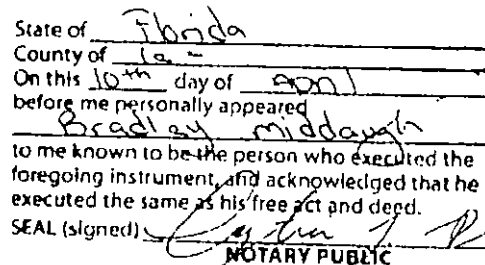 State of Florida
County of
On this 10th day of April
before me personally appeared
Bradley Middaugh
to me known to be the person who executed the
foregoing instrument, and acknowledged that he
executed the same as his free act and deed.
SEAL (signed)
NOTARY PUBLIC